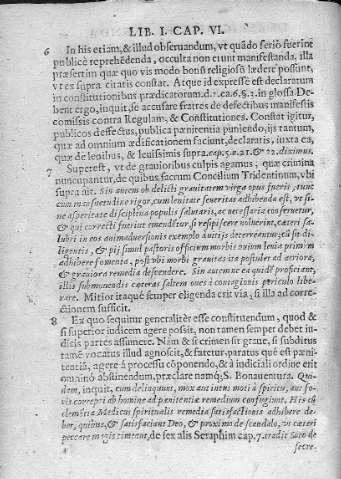 LIB. I. CAP. VI.
6 In his etiam, & illud obseruandum, vt quãdo seriò fuerint
publicè reprehẽdenda, occulta non erunt manifestanda. illa
præsertim quæ quo vis modo bonũ religiosũ lædere possunt,
vt ex supra citatis constat. Atque id expressè est declaratum
in constitutionibus prædicatorum. d. 2. ca. 6. §. 2. in glossa De-
bent ergo, inquit, se accusare fratres de defectibus manifestis
comissis contra Regulam, & Constitutiones. Constat igitur,
publicos defectus, publica pænitentia puniendo, ijs tantum,
quæ ad omnium ædificationem faciunt, declaratis, iuxta ea,
quæ de leuibus, & leuissimis supra, cap. 5. a. 21. & 22. diximus.
7 Superest, vt de grauioribus culpis agamus, quæ crimina
nuncupantur, de quibus sacrum Concilium Tridentinum, vbi
supra ait. Sin autem ob delicti grauitatem virga opus fuerit, tunc
cum mansuetudine rigor, cum lenitate seueritas adhibenda est, vt si-
ne asperitate disciplina populis salutaris, ac necessaria conseruetur,
& qui correcti fuerint emendẽtur, si respiscere noluerint, cæteri sa-
lubri in eos animaduersionis exemplo à vitijs deterreantur; cũ sit di-
ligentis, & pij simul pastoris officium morbis ouium leuia primum
adhibere fomenta, post vbi morbi grauitas ita postulet ad acriora,
& grauiora remedia descendere. Sin autem nec ea quidẽ proficiant,
illis submouendis cæteras saltem oues à contagionis periculo libe-
rare. Mitior itaquẽ semper eligenda erit via, si illa ad corre-
ctionem sufficit.
8 Ex quo sequitur generalitèr esse constituendum, quod &
si superior iudicem agere possit, non tamen semper debet iu-
dicis partes assumere. Nam & si crimen sit graue, si subditus
tamẽ vocatus illud agnoscit, & fatetur, paratus què est pæni-
tentiã, agere à processu cõponendo, & à iudiciali ordine erit
omninò abstinendum, præclare namq; S. Bonauentura. Qui-
dem, inquit, cum delinquunt, mox aut interi moti à spiritu, aut fo-
vis correpti ab homine ad pænitentiæ remedium confugiunt. His cũ
clemẽtia Medicus spiritualis remedia satisfactionis adhibere de-
bet, quibus, & satisfaciant Deo, & proximo de scandalo, vt cæteri
peccare magis timeant, de sex alis Seraphim cap. 7. tradit Soto de
secre.